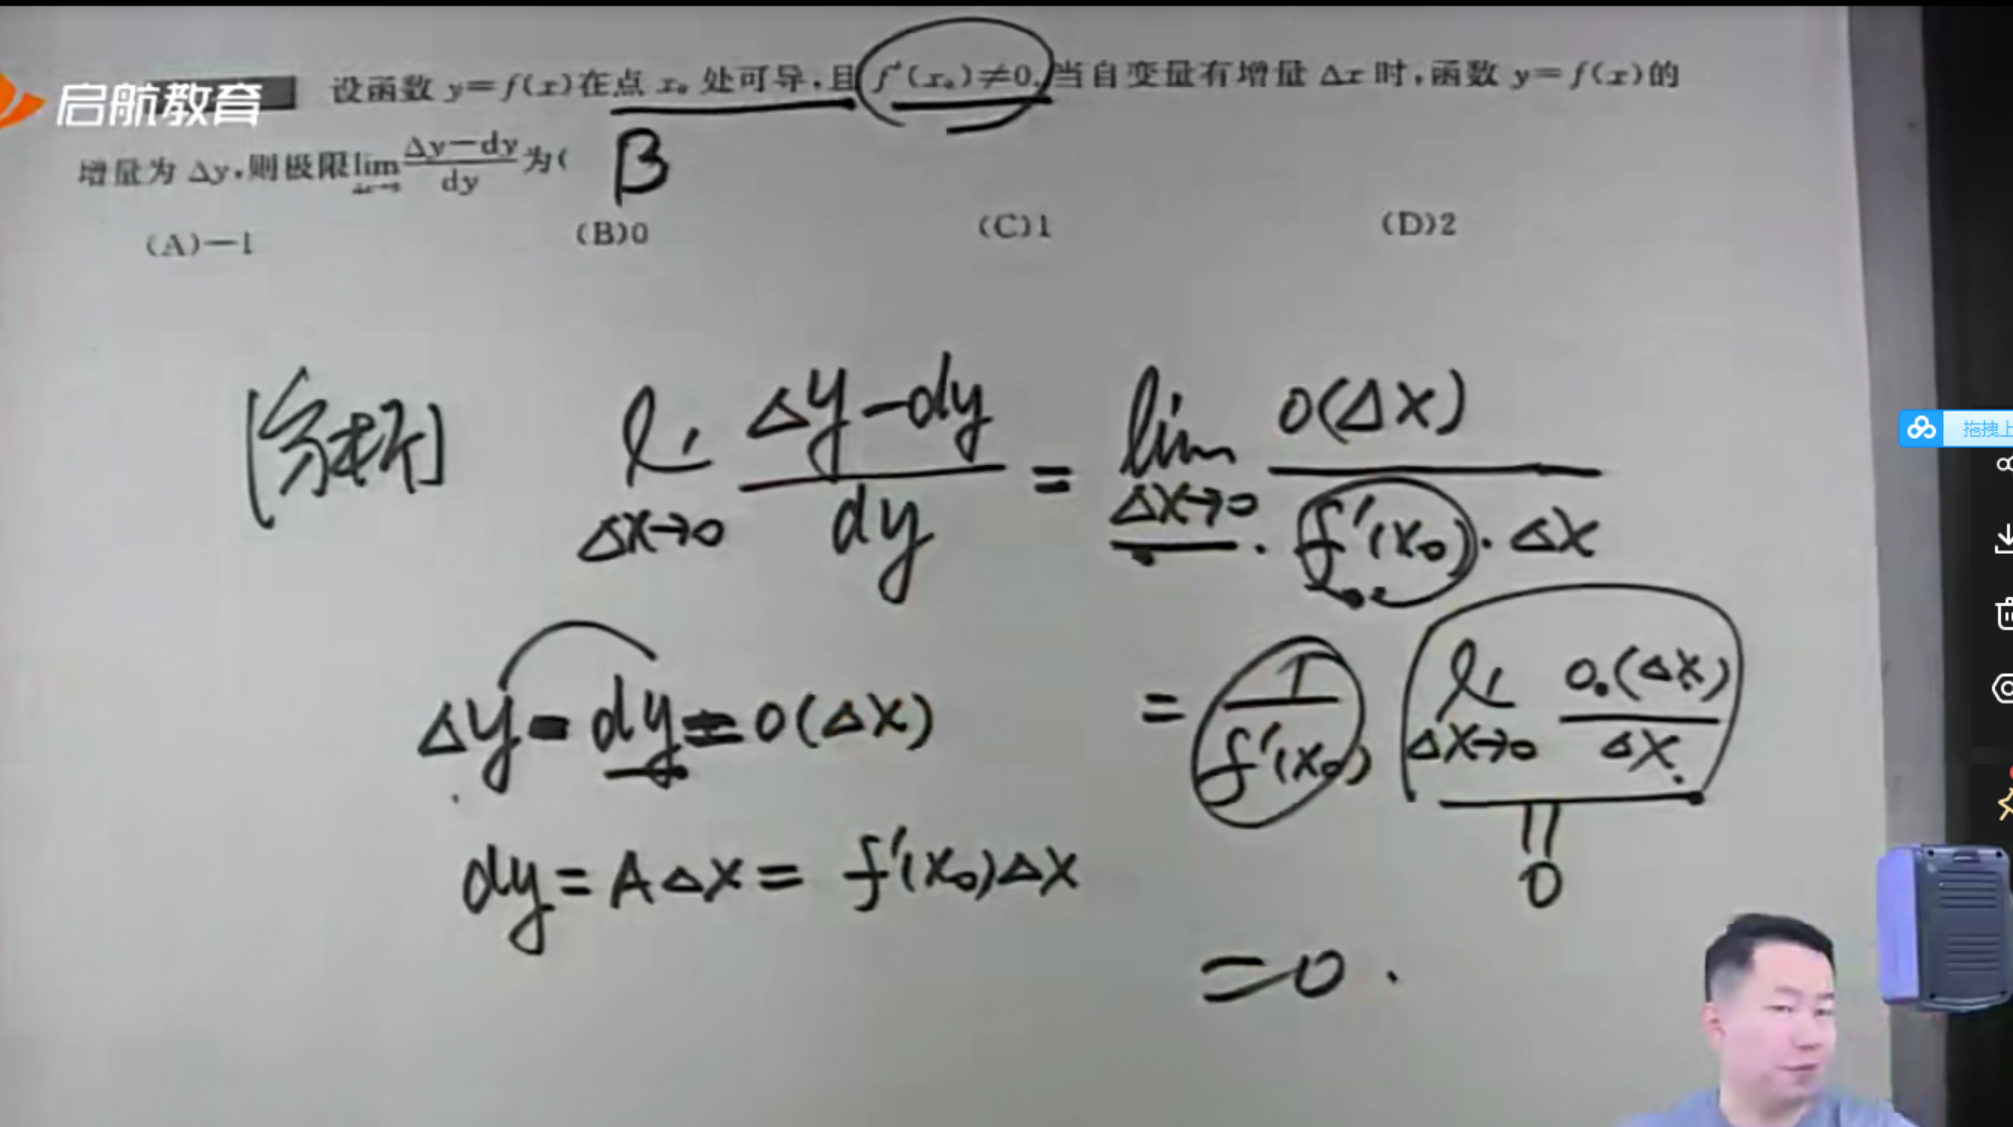 启航教育
设函数 y=f(x)在点 x₀ 处可导,且 f'(x₀)≠0,当自变量有增量 Δx 时,函数 y=f(x)的
增量为 Δy,则极限lim Δx→0 (Δy-dy)/dy 为( B
(A)-1 (B)0 (C)1 (D)2
[分析] lim Δx→0 (Δy-dy)/dy = lim Δx→0 o(Δx)/(f'(x₀)·Δx)
Δy-dy=o(Δx)
= 1/f'(x₀) lim Δx→0 o(Δx)/Δx
dy=AΔx=f'(x₀)Δx
0
=0.
拖拽上